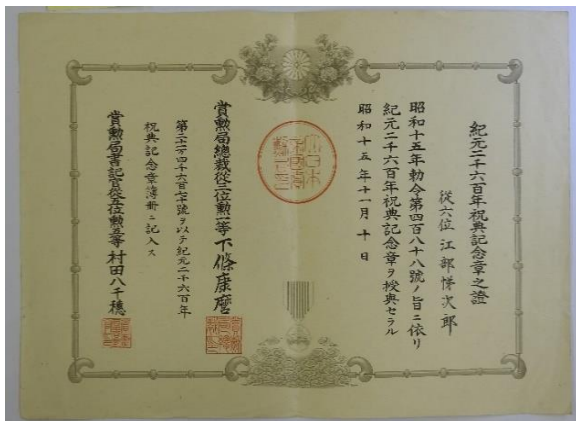 紀元二千六百年祝典記念章之證
從六位 江部悌次郎
昭和十五年勅令第四百八十八號ノ旨ニ依リ
紀元二千六百年祝典記念章ヲ授與セラル
昭和十五年十一月十日
賞勲局總裁從三位勲一等下條康麿
號ヲ以テ紀元二千六百年
祝典記念章簿冊ニ記入ス
賞勲局書記官從五位勲五等村田八千穗